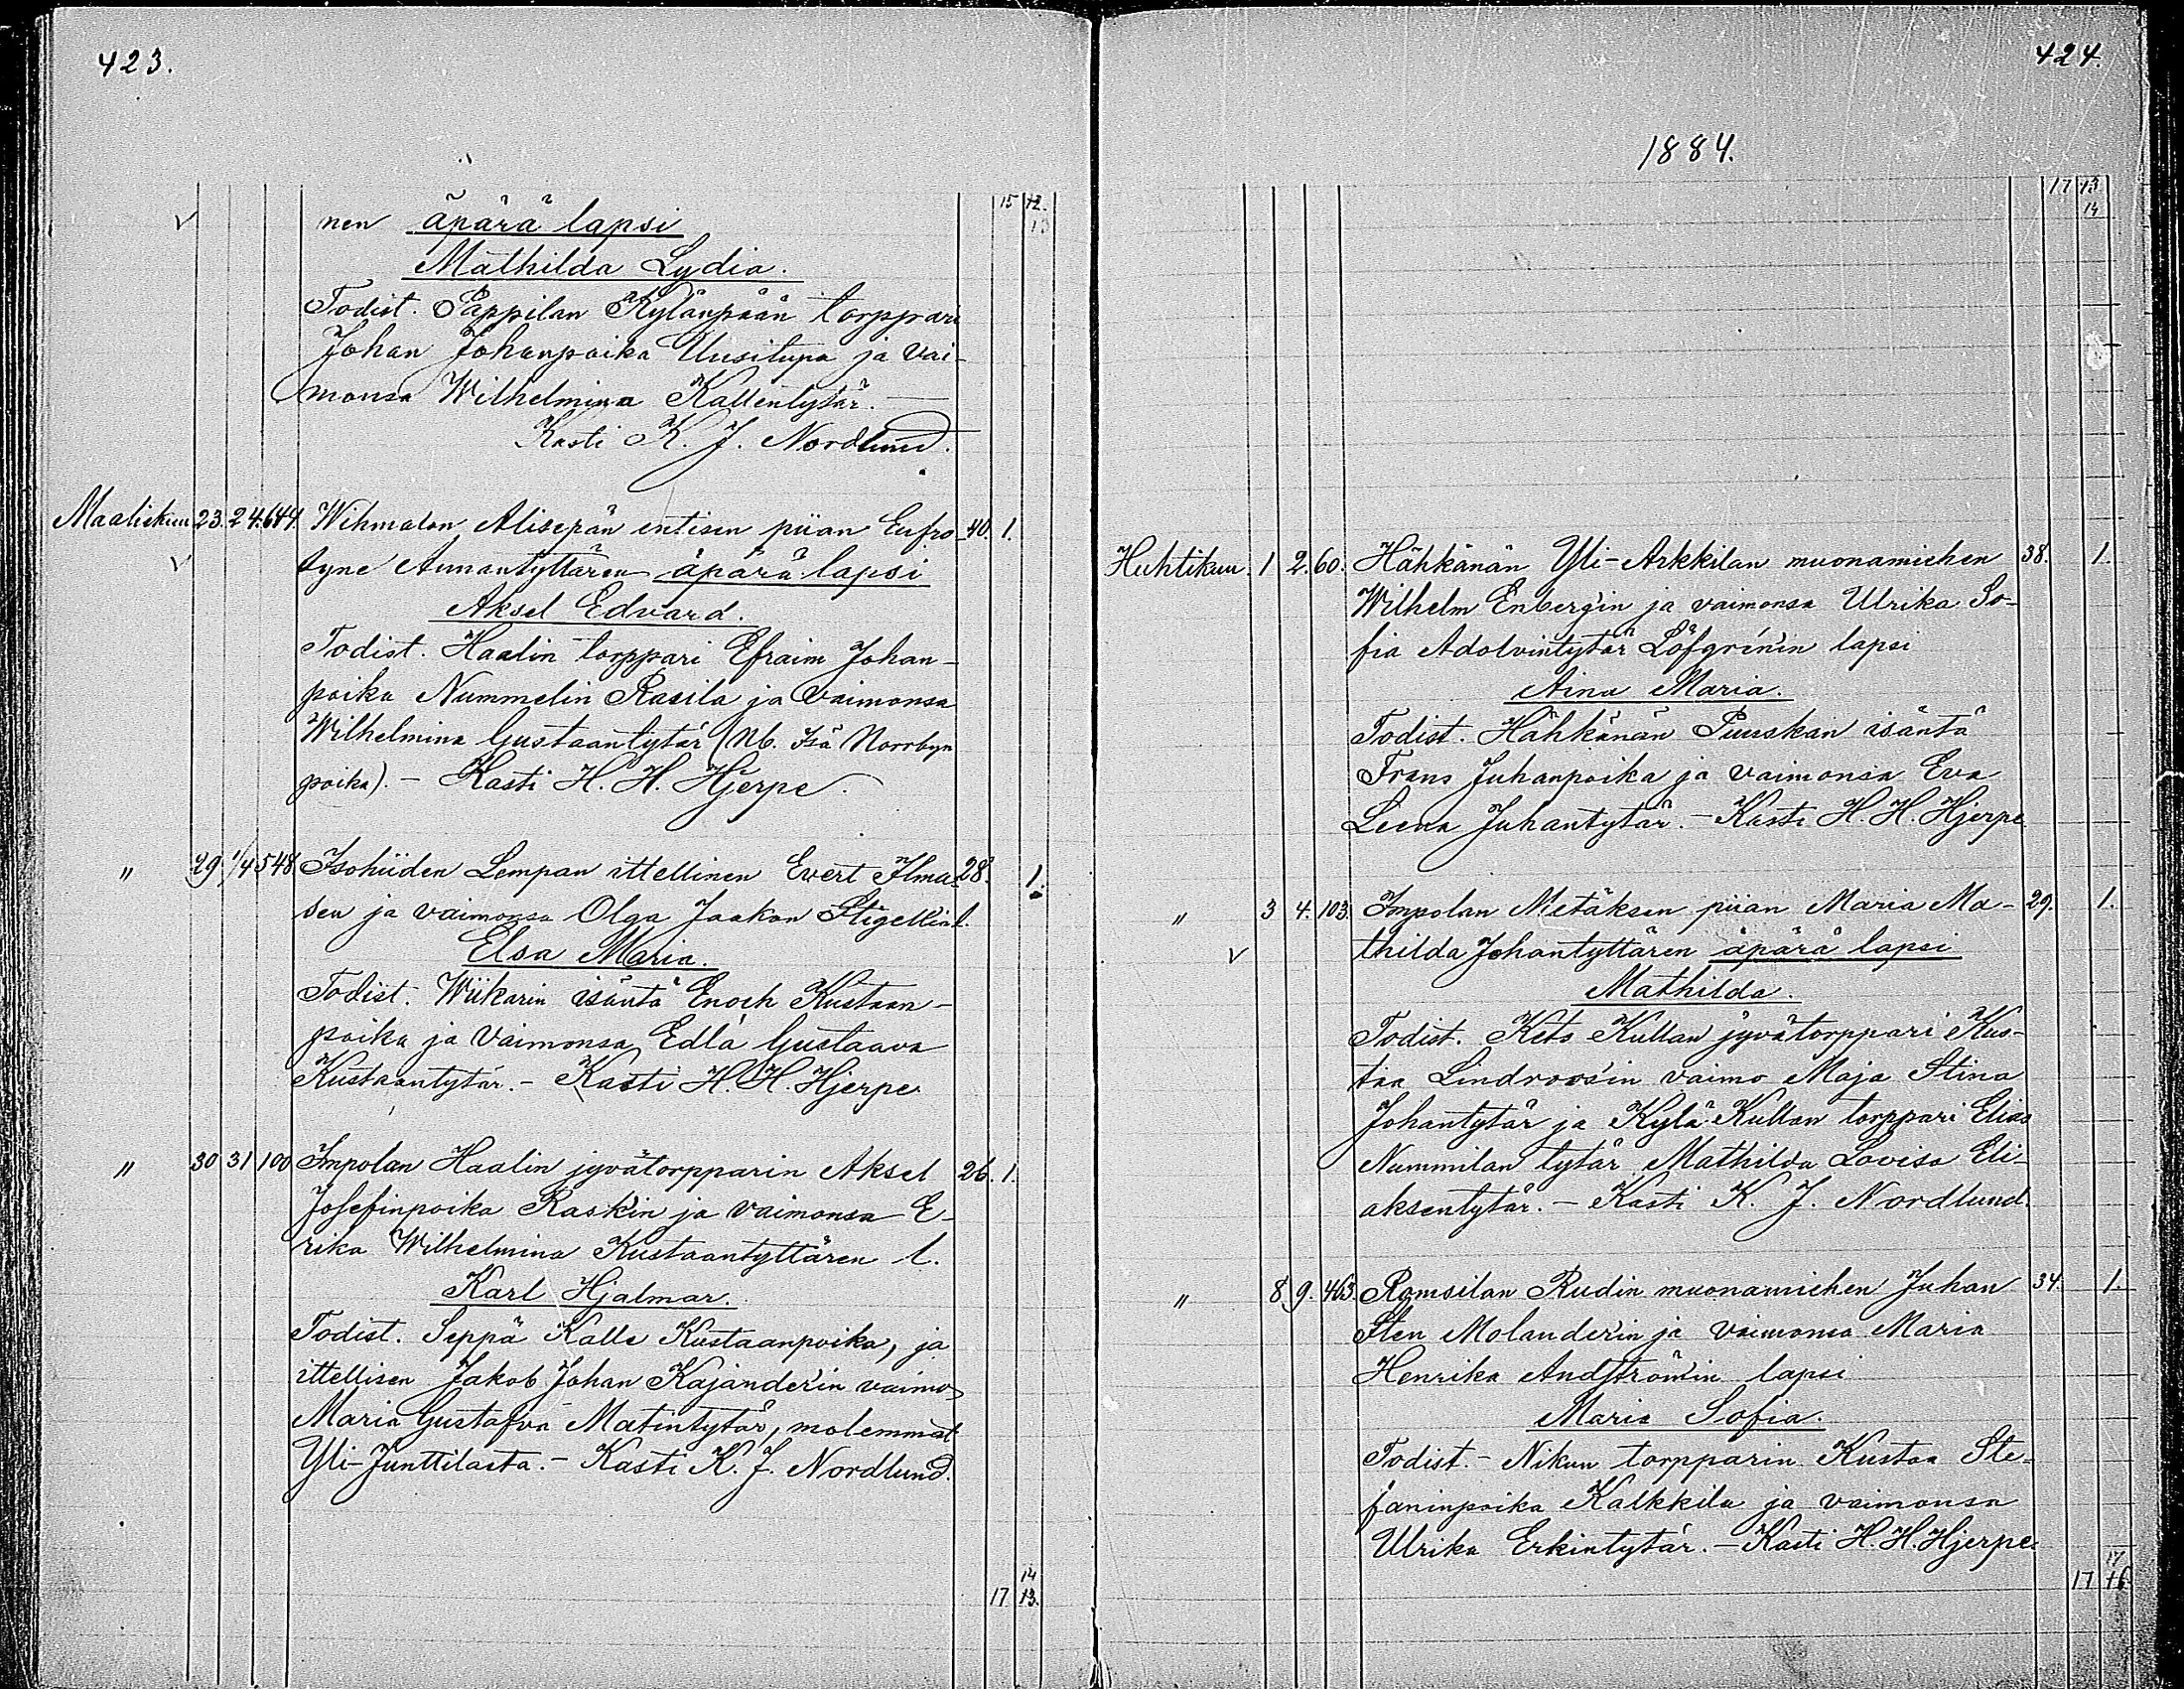 423.
15 12.
13
nen äpärä lapsi
Mathilda Lydia.
Todist. Pappilan Kylänpään torppari
Johan Johanpoika Uusitupa ja vai-
monsa Wilhelmina Kallentytär. —
Kasti K. J. Nordlund.
Maaliskuu 23. 24. 644. Wihmalon Alisepän entisen piian Eufro- 40. 1.
syne Annantyttären äpärä lapsi
Aksel Edvard.
Todist. Haalin torppari Efraim Johan-
poika Nummelin Rasila ja vaimonsa
Wilhelmina Gustaantytär (Nb. Isä Norrbyn
poika). — Kasti H. H. Hjerpe.
" 29 1/4 548 Isohiiden Lempan ittellinen Evert Ilma- 28. 1.
sen ja vaimonsa Olga Jaakon Stigellin l.
Elsa Maria.
Todist. Wiikarin isäntä Enoch Kustaan-
poika ja vaimonsa Edla Gustaava
Kustaantytär. — Kasti H. H. Hjerpe.
" 30 31 100 Impolan Haalin jyvätorpparin Aksel 26. 1.
Josefinpoika Raskin ja vaimonsa E-
rika Wilhelmina Kustaantyttären l.
Karl Hjalmar.
Todist. Seppä Kalle Kustaanpoika, ja
ittellisen Jakob Johan Kajander'in vaimo
Maria Gustafva Matintytär, molemmat
Yli-Junttilasta. — Kasti K. J. Nordlund.
14
17 13.
424.
1884.
17 13
14
Huhtikuu. 1 2. 60. Hähkänän Yli-Arkkilan muonamiehen 38. 1.
Wilhelm Enberg'in ja vaimonsa Ulrika So-
fia Adolvintytär Löfgrén'in lapsi
Aina Maria.
Todist. Hähkänän Puuskan isäntä
Frans Juhanpoika ja vaimonsa Eva
Leena Juhantytär. — Kasti H. H. Hjerpe.
" 3 4. 103. Impolan Metäksen piian Maria Ma- 29. 1.
thilda Johantyttären äpärä lapsi
Mathilda.
Todist. Keto Kullan jyvätorppari Kus-
taa Lindroos'in vaimo Maja Stina
Johantytär ja Kylä Kullan torppari Elias
Nummilan tytär Mathilda Lovisa Eli-
aksentytär. — Kasti K. J. Nordlund.
" 8 9. 463. Romsilan Rudin muonamiehen Juhan 34. 1.
Sten Molander'in ja vaimonsa Maria
Henrika Andström'in lapsi
Maria Sofia.
Todist. — Nikun torpparin Kustaa Ste-
faninpoika Kalkkila ja vaimonsa
Ulrika Erkintytär. — Kasti H. H. Hjerpe.
17
17 16.